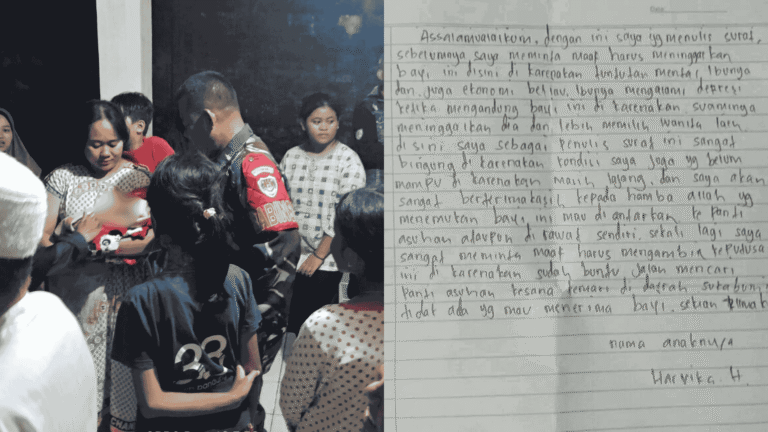 Assalamualaikum, dengan ini saya yg menulis surat,
sebelumnya saya meminta maaf harus meninggalkan
bayi ini disini di karenakan tuntutan mental Ibunya
dan juga ekonomi beliau. Ibunya mengalami depresi
ketika mengandung bayi ini di karenakan suaminya
meninggalkan dia dan lebih memilih wanita lain
disini saya sebagai penulis surat ini sangat
bingung di karenakan kondisi saya juga yg belum
mampu di karenakan masih lajang, dan saya akan
sangat berterimakasih kepada hamba allah yg
menemukan bayi ini mau di antarkan ke panti
asuhan ataupun di rawat sendiri, sekali lagi saya
sangat meminta maaf harus mengambil keputusa
ini di karenakan sudah buntu, jalan mencari
panti asuhan kesana kemari di daerah sukabumi
tidak ada yg mau menerima bayi, sekian
nama anaknya
Haryika. H.
23